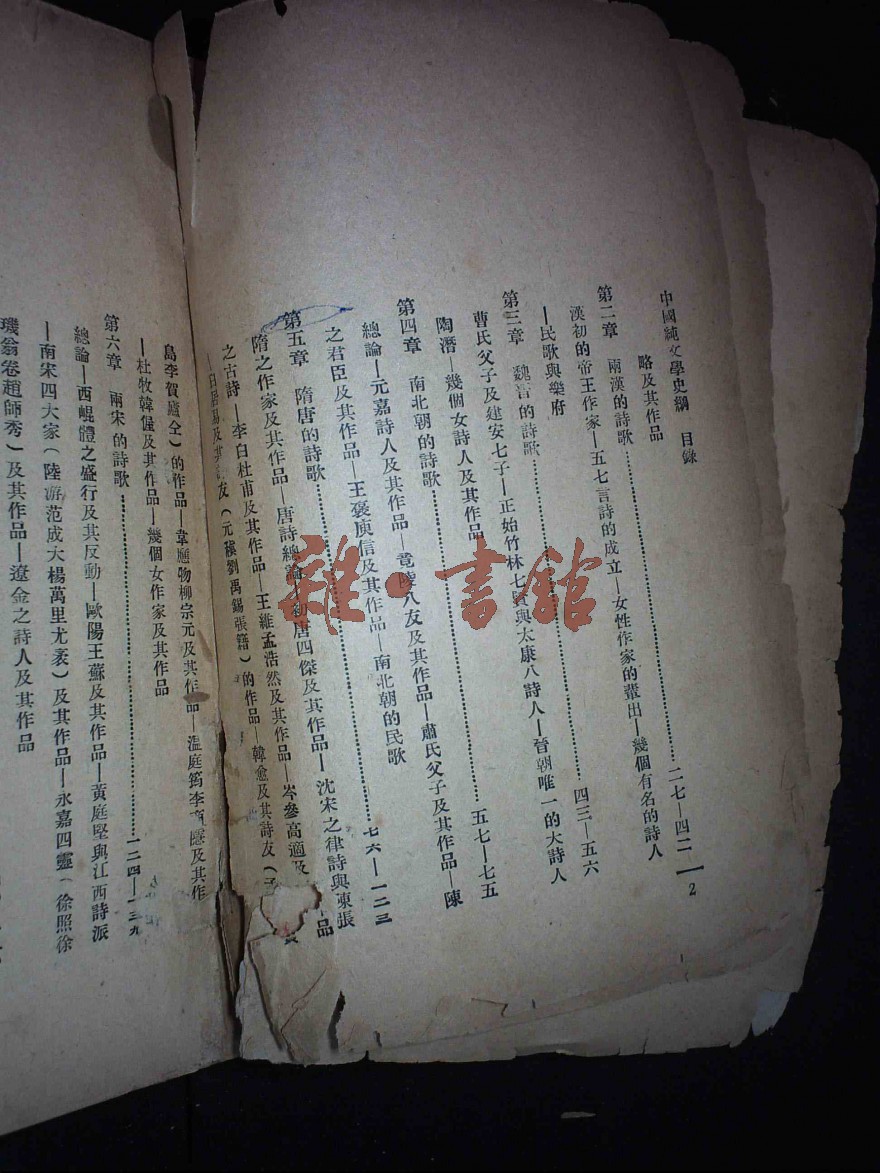 中國純文學史綱　目錄
2
略及其作品
第二章　兩漢的詩歌……二七—四二
漢初的帝王作家—五七言詩的成立—女性作家的輩出—幾個有名的詩人
—民歌與樂府
第三章　魏晉的詩歌……四三—五六
曹氏父子及建安七子—正始竹林七賢與太康八詩人—晉朝唯一的大詩人
陶潛—幾個女詩人及其作品
第四章　南北朝的詩歌……五七—七五
總論—元嘉詩人及其作品—竟陵八友及其作品—蕭氏父子及其作品—陳
之君臣及其作品—王褒庾信及其作品—南北朝的民歌
第五章　隋唐的詩歌……七六—一二三
隋之作家及其作品—唐詩總論—初唐四傑及其作品—沈宋之律詩與陳張
之古詩—李白杜甫及其作品—王維孟浩然及其作品—岑參高適及 品
—白居易及其 友（元稹劉禹錫張籍）的作品—韓愈及其詩友（
島李賀盧仝）的作品—韋應物柳宗元及其作品—溫庭筠李商隱及其作
—杜牧韓偓及其作品—幾個女作家及其作品
第六章　兩宋的詩歌……一二四—一三九
總論—西崐體之盛行及其反動—歐陽王蘇及其作品—黃庭堅與江西詩派
—南宋四大家（陸游范成大楊萬里尤袤）及其作品—永嘉四靈（徐照徐
璣翁卷趙師秀）及其作品—遼金之詩人及其作品
雜·書館